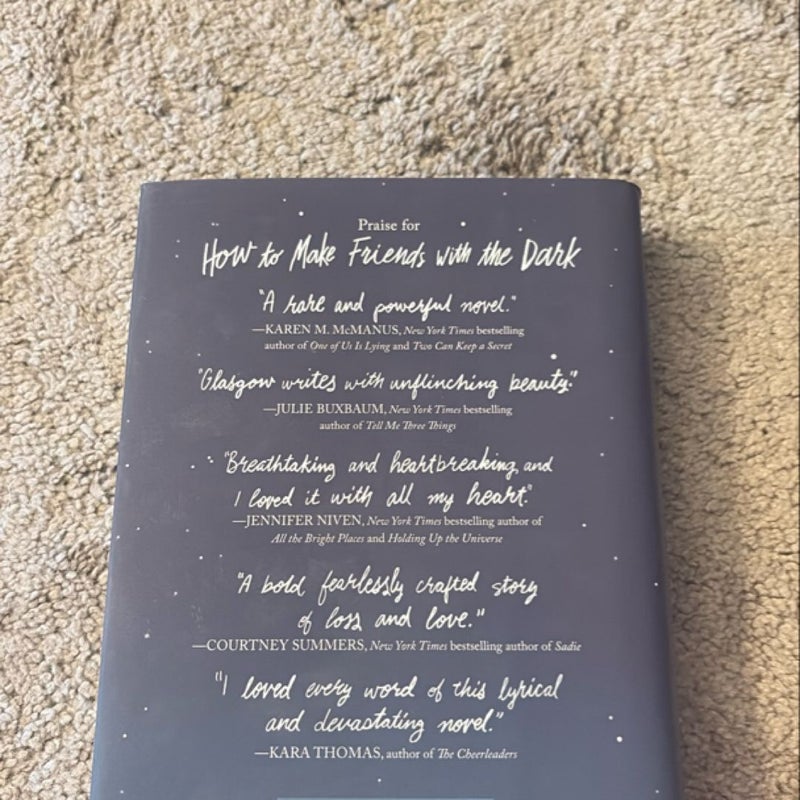 Praise for
How to Make Friends with the Dark
"A rare and powerful novel."
—KAREN M. McMANUS, New York Times bestselling
author of One of Us Is Lying and Two Can Keep a Secret
"Glasgow writes with unflinching beauty."
—JULIE BUXBAUM, New York Times bestselling
author of Tell Me Three Things
"Breathtaking and heartbreaking, and
I loved it with all my heart."
—JENNIFER NIVEN, New York Times bestselling author of
All the Bright Places and Holding Up the Universe
"A bold, fearlessly crafted story
of loss and love."
—COURTNEY SUMMERS, New York Times bestselling author of Sadie
"I loved every word of this lyrical
and devastating novel."
—KARA THOMAS, author of The Cheerleaders